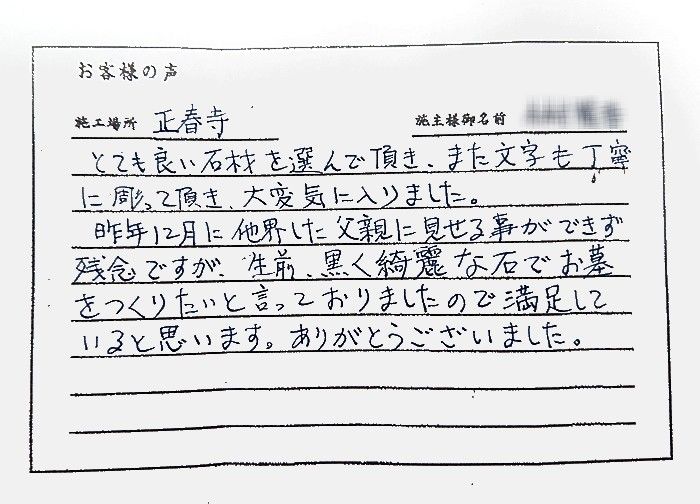 お客様の声
施工場所 正春寺 施主様御名前
とても良い石材を選んで頂き、また文字も丁寧
に彫って頂き、大変気に入りました。
昨年12月に他界した父親に見せる事ができず
残念ですが、生前、黒く綺麗な石でお墓
をつくりたいと言っておりましたので満足して
いると思います。ありがとうございました。